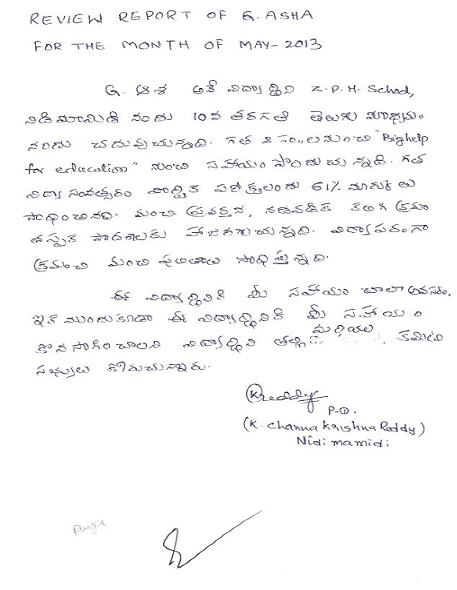 REVIEW REPORT OF G. ASHA
FOR THE MONTH OF MAY-2013
G. ఆశ అనే విద్యార్థిని Z.P.H. School,
నిడిమామిడి నందు 10వ తరగతి తెలుగు మాధ్యమం
నందు చదువుచున్నది. గత 2 సం,,ల నుంచి "Bighelp
for education" నుంచి సహాయం పొందుచున్నది. గత
విద్యా సంవత్సరం వార్షిక పరీక్షలందు 61% మార్కులు
సాధించినది. మంచి ప్రవర్తన, నడవడిక కలిగి క్రమం
తప్పక పాఠశాలకు హాజరగుచున్నది. విద్యాపరంగా
క్రమంచి మంచి ఫలితాలు సాధిస్తున్నది.
ఈ విద్యార్థినికి మీ సహాయం చాలా అవసరం.
ఇక ముందుకూడా ఈ విద్యార్థినికి మీ సహాయం
కొనసాగించాలని విద్యార్థిని తల్లి మరియు కమిటి
సభ్యులు కోరుచున్నారు.
KReddy
P.D.
(K. Channa Krishna Reddy)
Nidimamidi